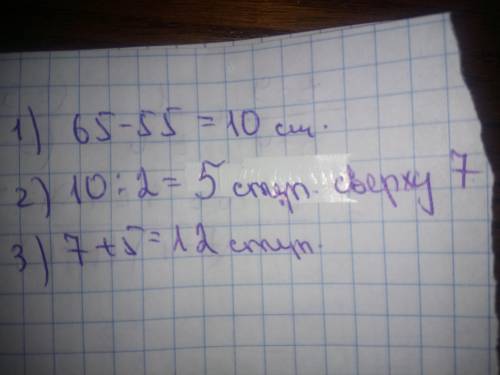 1) 65-55=10 см.
2) 10:2= 5 ступ. сверху 7
3) 7+5=12 ступ.